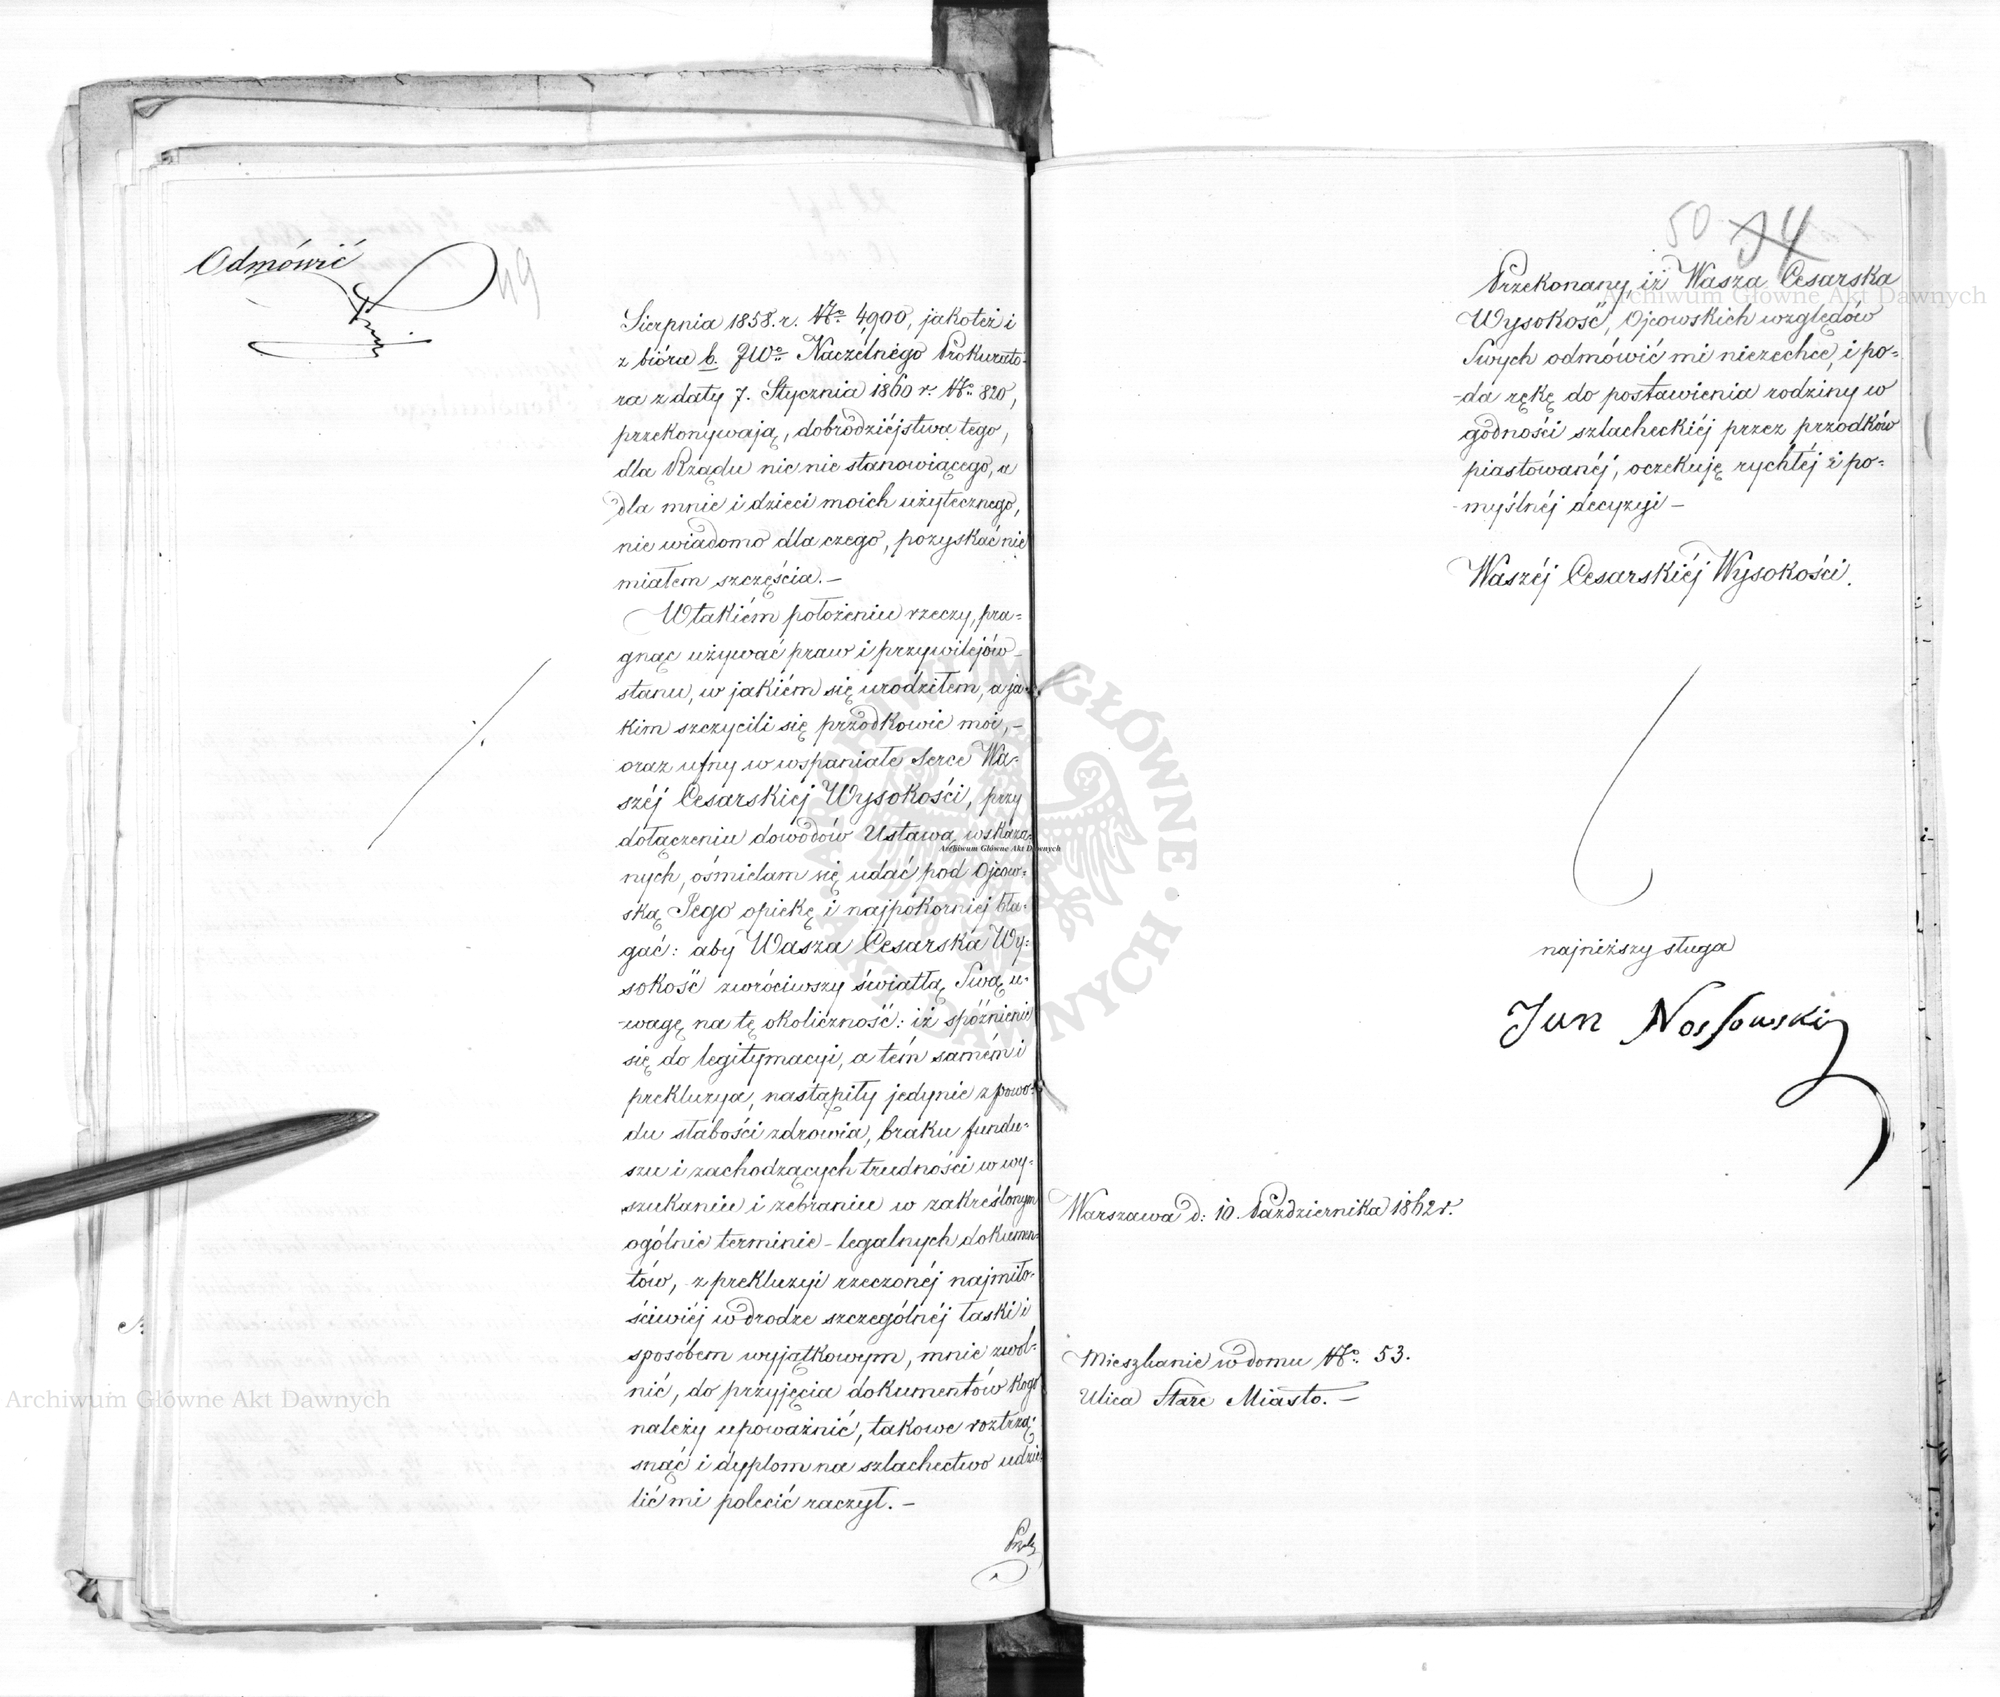 Odmówić
49
Sierpnia 1858. r. No. 4,900, jakoteż i
z bióra b. JWo Naczelnégo Prokurato-
ra z daty 7. Stycznia 1860 r. No. 820,
przekonywają, dobrodziéjstwa tego,
dla Rządu nic nie stanowiącego, a
dla mnie i dzieci moich użytecznego,
nie wiadomo dla czego, pozyskać nie
miałem szczęścia. —
W takiém położeniu rzeczy, pra=
gnąc używać praw i przywilejów
stanu, w jakiém się urodziłem, a ja-
kim szczycili się przodkowie moi, —
oraz ufny w wspaniałe Serce Wa-
széj Cesarskiéj Wysokości, przy
dołączeniu dowodów Ustawą wskaza-
nych, ośmielam się udać pod Ojcow=
ską Jego opiekę i najpokorniéj bła-
gać: aby Wasza Cesarska Wy=
sokość zwróciwszy światłą Swą u-
-wagę na tę okoliczność: iż spóźnienie
się do legitymacyi, a tém samém i
prekluzya, nastąpiły jedynie z powo-
du słabości zdrowia, braku fundu=
szu i zachodzących trudności w wy=
szukaniu i zebraniu w zakreślonym
ogólnie terminie – legalnych dokumen-
tów, z prekluzyi rzeczonéj najmiło-
ściwiéj w drodze szczególnéj łaski i
sposobem wyjątkowym, mnie zwol-
nić, do przyjęcia dokumentów kogo
należy upoważnić, takowe roztrzą-
snąć i dyplom na szlachectwo udzie-
lić mi polecić raczył. —
50 34
Przekonany, iż Wasza Cesarska
Wysokość, Ojcowskich względów
Swych odmówić mi niezechce, i po=
-da rękę do postawienia rodziny w
godności szlacheckiéj przez przodków
piastowanéj, oczekuję rychłéj i po=
-myślnéj decyzyi —
Waszéj Cesarskiéj Wysokości.
najniższy sługa
Jan Nossowski
Warszawa d: 10. Października 1862 r.
Mieszkanie w domu No. 53.
Ulica Stare Miasto. —
Archiwum Główne Akt Dawnych
Archiwum Główne Akt Dawnych
Archiwum Główne Akt Dawnych
ARCHIWUM GŁÓWNE AKT DAWNYCH